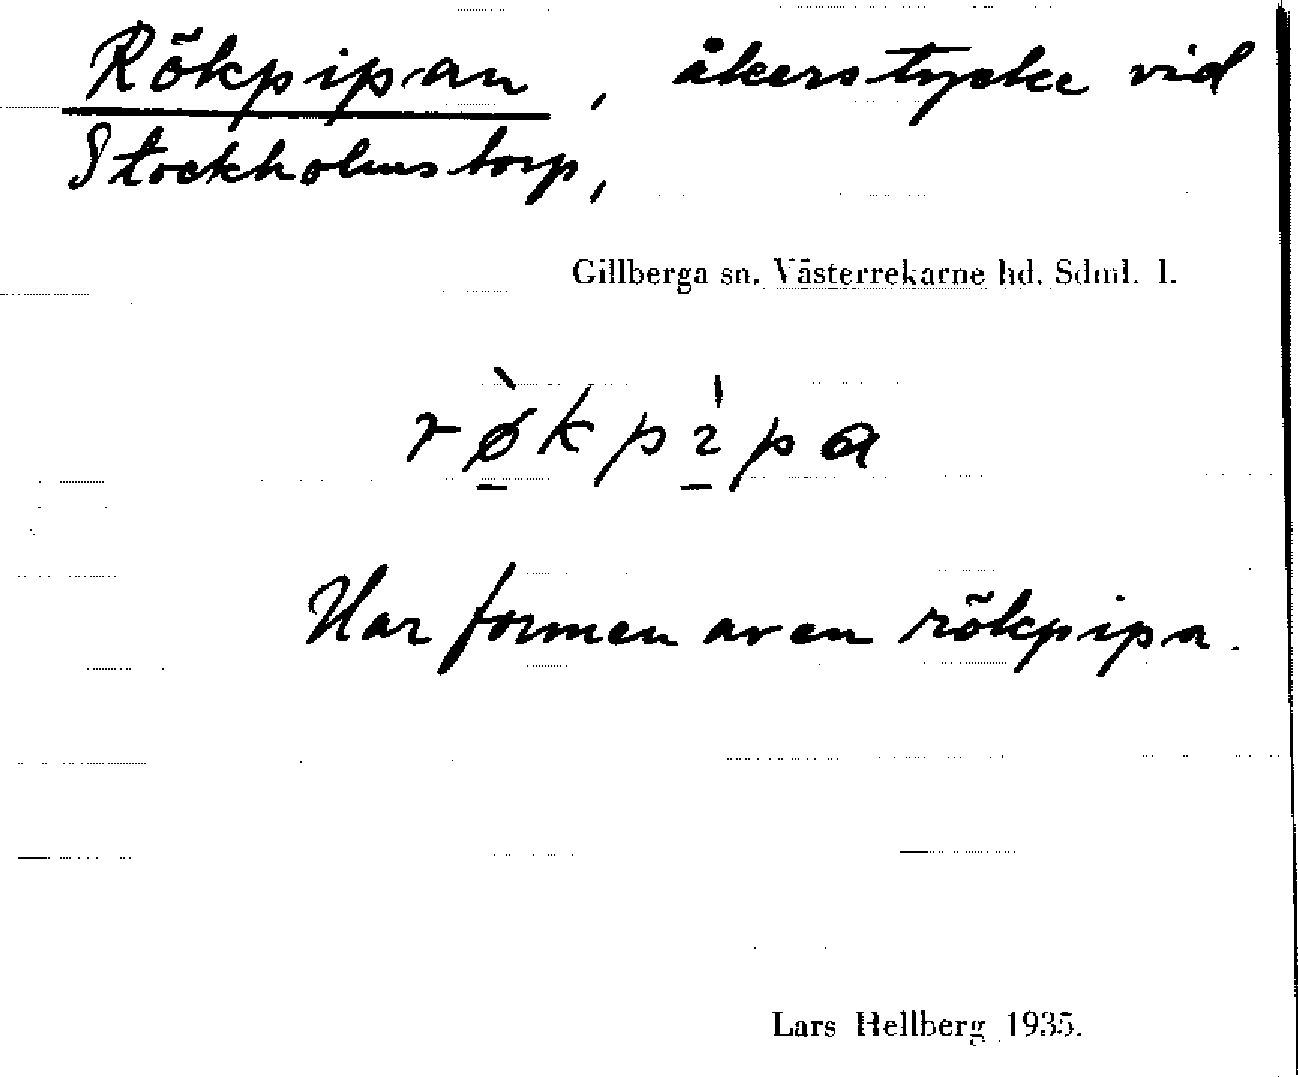 Rökpipan, åkerstycke vid
Stockholmstorp,
Gillberga sn. Västerrekarne hd. Sdml. l.
rø̀kpıpa
Har formen av en rökpipa.
Lars Hellberg 1935.